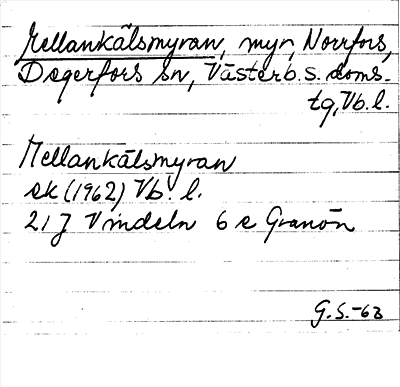 Mellankålsmyran, myr, Norrfors,
Degerfors sn, Västerb. s. doms.
tg, Vb. l.
Mellankålsmyran
ek (1962) Vb. l.
21 J Vindeln 6 e Granön
G.S.-63